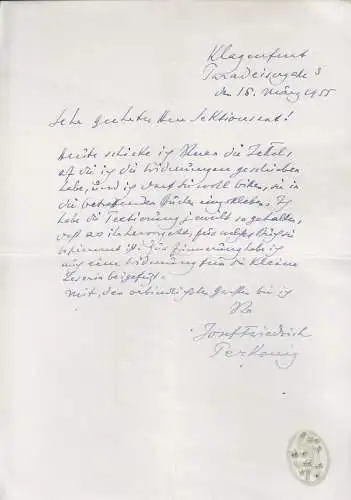 Klagenfurt
Paradeisergasse 3
den 15. März 1955
Sehr geehrter Herr Sektionsrat!
Heute schicke ich Ihnen die Zettel,
auf die ich die Widmungen geschrieben
habe, und ich darf Sie wohl bitten, sie in
die betreffenden Bücher einzukleben. Ich
habe die Textierung jeweils so gehalten,
daß aus ihr hervorgeht, für welches Buch sie
bestimmt ist. Zur Erinnerung habe ich
auch eine Widmung für die kleine
Leserin beigefügt.
Mit den verbindlichsten Grüßen bin ich
Ihr
Josef Friedrich
Perkonig